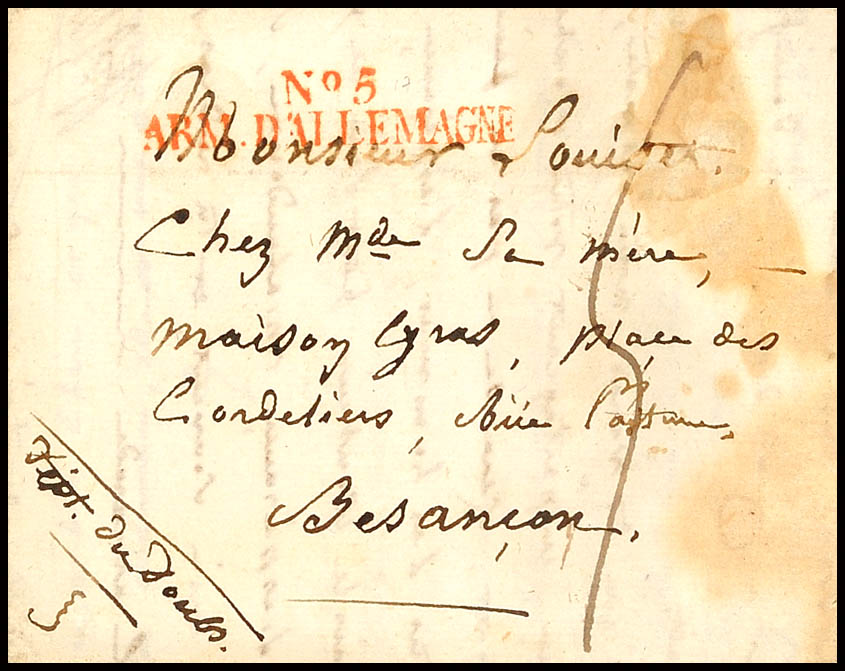 No 5
ARM. D'ALLEMAGNE
Monsieur
Chez Mde Sa mère,
maison gras, place des
Cordeliers, Rüe
Besançon.
Dépt. du Doubs.